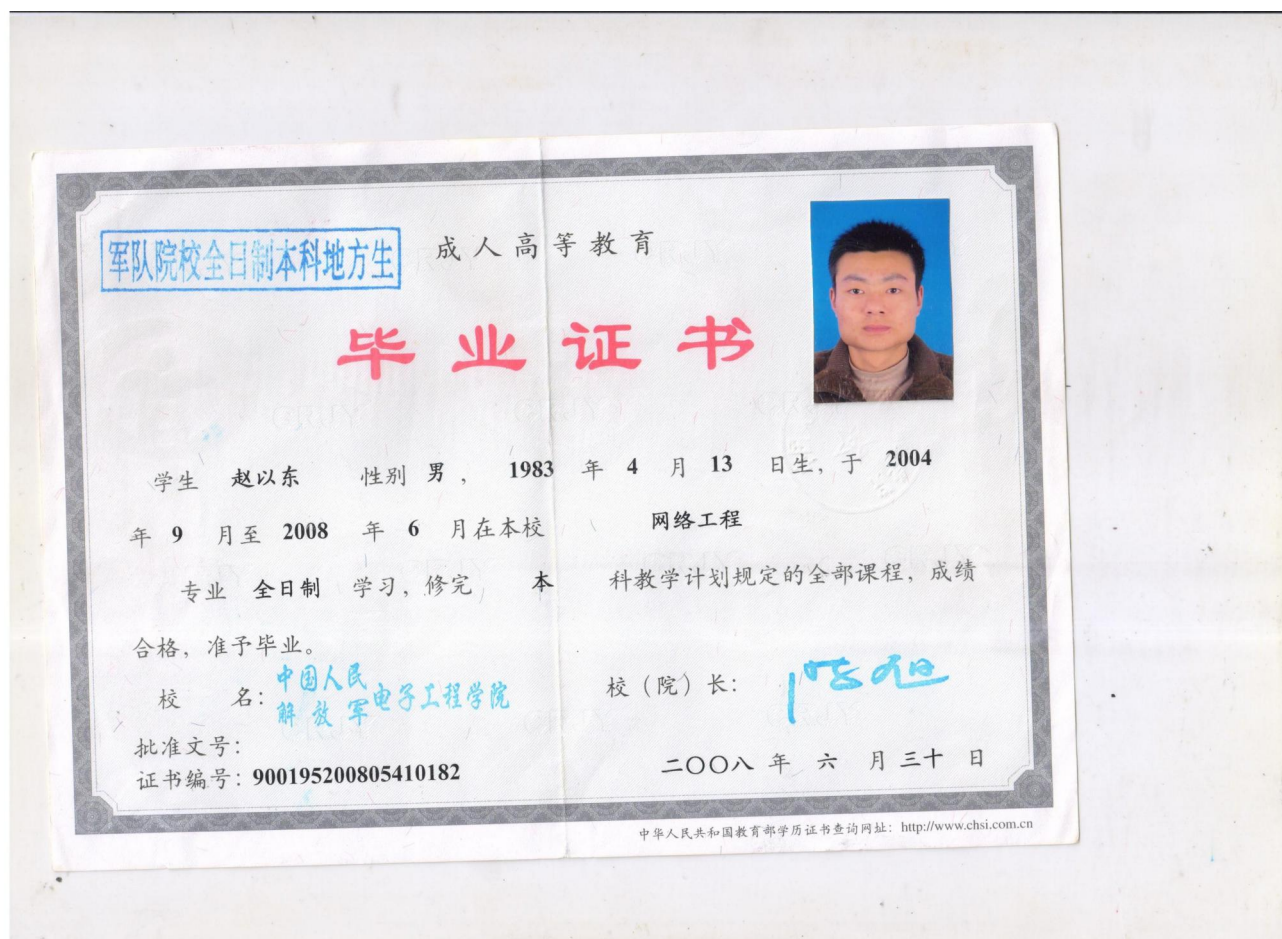 军队院校全日制本科地方生
成人高等教育
毕业证书
学生 赵以东 性别 男 ， 1983 年 4 月 13 日生，于 2004
年 9 月至 2008 年 6 月在本校 网络工程
专业 全日制 学习，修完 本 科教学计划规定的全部课程，成绩
合格，准予毕业。
校 名：中国人民解放军电子工程学院
校（院）长：
批准文号：
证书编号：900195200805410182
二〇〇八 年 六 月 三十 日
中华人民共和国教育部学历证书查询网址：http://www.chsi.com.cn